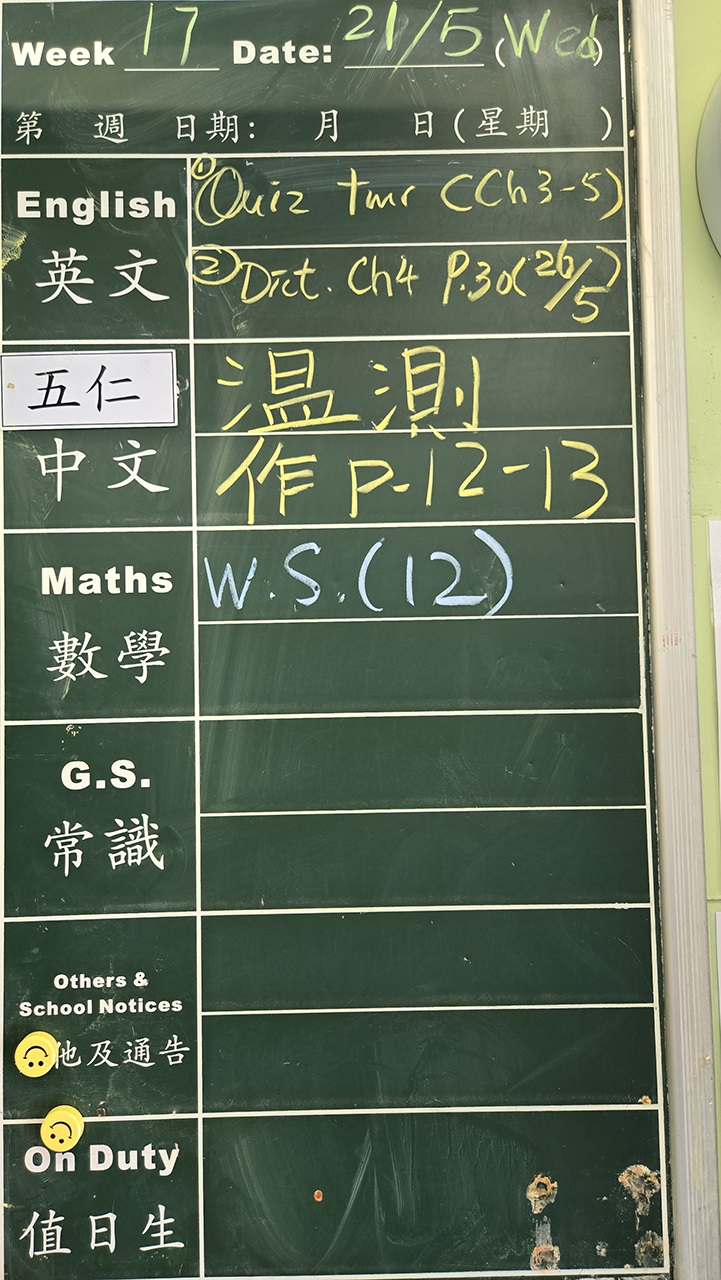 Week 17 Date: 21/5 (Wed)
第 週 日期: 月 日(星期 )
English
英文
① Quiz tmr (Ch3-5)
② Dict. Ch4 P.30 (26/5)
五仁
中文
温測
作 P.12-13
Maths
數學
W.S.(12)
G.S.
常識
Others &
School Notices
他及通告
On Duty
值日生